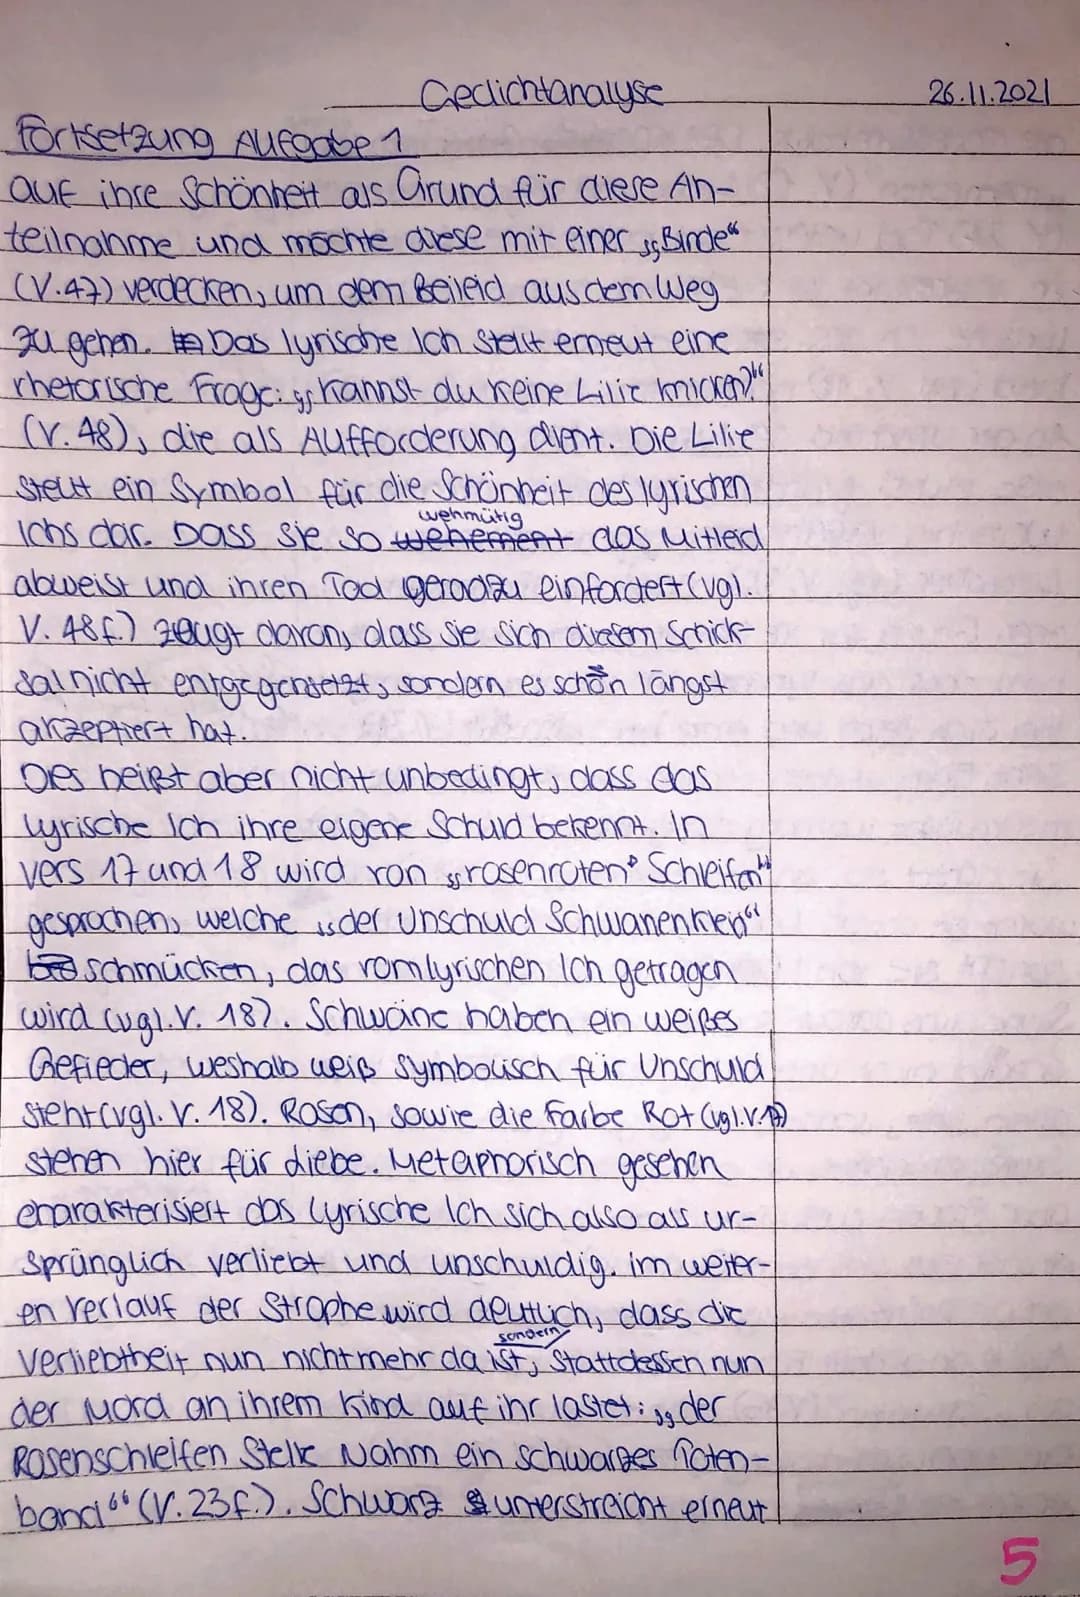 Gedichtanalyse 26.11.2021
Fortsetzung Aufgabe 1
auf ihre Schönheit als Grund für diese An-
teilnahme und möchte diese mit einer „Binde“
(V.47) verdecken, um dem Beileid aus dem Weg
zu gehen. Das lyrische Ich stellt erneut eine
rhetorische Frage: „Kannst du keine Lilie knicken?“
(V. 48), die als Aufforderung dient. Die Lilie
stellt ein Symbol für die Schönheit des lyrischen
wehmütig
Ichs dar. Dass sie so wehement das Mitleid
abweist und ihren Tod geradzu einfordert (vgl.
V. 48f.) zeugt davon, dass sie sich diesem Schick-
sal nicht entgegensetzt, sondern es schon längst
akzeptiert hat.
Dies heißt aber nicht unbedingt, dass das
lyrische Ich ihre eigene Schuld bekennt. In
Vers 17 und 18 wird von „rosenroten Schleifen“
gesprochen, welche „der Unschuld Schwanenkleid“
schmücken, das vom lyrischen Ich getragen
wird (vgl. V. 18). Schwäne haben ein weißes
Gefieder, weshalb weiß symbolisch für Unschuld
steht (vgl. V. 18). Rosen, sowie die Farbe Rot (vgl. V. 17)
stehen hier für Liebe. Metaphorisch gesehen
charakterisiert das lyrische Ich sich also als ur-
sprünglich verliebt und unschuldig. Im weiter-
en Verlauf der Strophe wird deutlich, dass die
sondern
Verliebtheit nun nicht mehr da ist, stattdessen nun
der Mord an ihrem Kind auf ihr lastet: „der
Rosenschleifen Stelle Nahm ein schwarzes Toten-
band“ (V. 23f.). Schwarz unterstreicht erneut
5